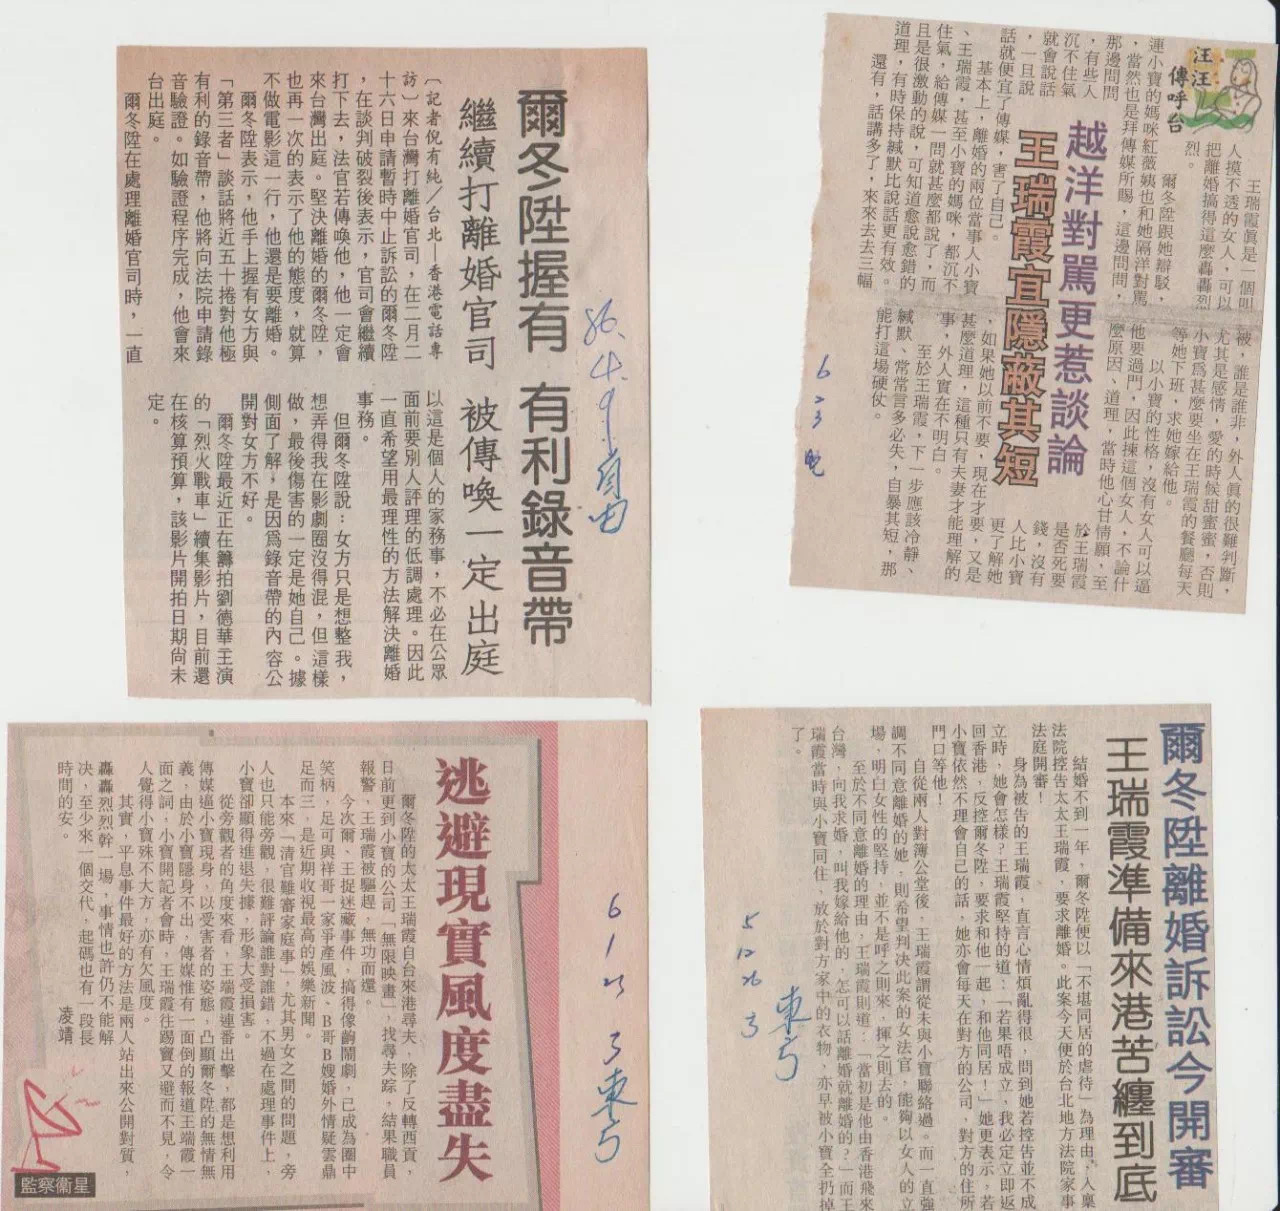 爾冬陞握有 有利錄音帶
繼續打離婚官司 被傳喚一定出庭
〔記者倪有純／台北—香港電話專
訪〕來台灣打離婚官司，在二月二
十六日申請暫時中止訴訟的爾冬陞
，在談判破裂後表示，官司會繼續
打下去，法官若傳喚他，他一定會
來台灣出庭。堅決離婚的爾冬陞，
也再一次的表示了他的態度，就算
不做電影這一行，他還是要離婚。
爾冬陞表示，他手上握有女方與
「第三者」談話將近五十捲對他極
有利的錄音帶，他將向法院申請錄
音驗證。如驗證程序完成，他會來
台出庭。
爾冬陞在處理離婚官司時，一直
以這是個人的家務事，不必在公眾
面前要別人評理的低調處理。因此
一直希望用最理性的方法解決離婚
事務。
但爾冬陞說：女方只是想整我，
想弄得我在影劇圈沒得混，但這樣
做，最後傷害的一定是她自己。據
側面了解，是因爲錄音帶的內容公
開對女方不好。
爾冬陞最近正在籌拍劉德華主演
的「烈火戰車」續集影片，目前還
在核算預算，該影片開拍日期尚未
定。
86.4.9.自由
汪汪
傳呼台
越洋對罵更惹談論
王瑞霞宜隱蔽其短
王瑞霞眞是一個叫
人摸不透的女人，可以
把離婚搞得這麼轟轟烈
烈。
爾冬陞跟她辯駁，
連小寶的媽咪紅薇姨也和她隔洋對罵
，當然也是拜傳媒所賜，這邊問問，
那邊問問
，有些人
沉不住氣
就會說話
，一旦說
話就便宜了傳媒，害了自己。
基本上，離婚的兩位當事人小寶
、王瑞霞，甚至小寶的媽咪，都沉不
住氣，給傳媒一問就甚麼都說了，而
且是很激動的說，可知道愈說愈錯的
道理，有時保持緘默比說話更有效。
還有，話講多了，來來去去三幅
被，誰是誰非，外人眞的很難判斷，
尤其是感情，愛的時候甜蜜蜜，否則
小寶爲甚麼要坐在王瑞霞的餐廳每天
等她下班，求她嫁給他。
以小寶的性格，沒有女人可以逼
他要過門，因此揀這個女人，不論什
麼原因、道理，當時他心甘情願，至
於王瑞霞
是否死要
錢，沒有
人比小寶
更了解她
，如果她以前不要，現在才要，又是
甚麼道理，這種只有夫妻才能理解的
事，外人實在不明白。
至於王瑞霞，下一步應該冷靜、
緘默、常常言多必失，自暴其短，那
能打這場硬仗。
6 23 晚
逃避現實風度盡失
爾冬陞的太太王瑞霞自台來港尋夫，除了反轉西貢，
日前更到小寶的公司「無限映畫」，找尋夫踪，結果職員
報警，王瑞霞被驅趕，無功而還。
今次爾、王捉迷藏事件，搞得像齣鬧劇，已成為圈中
笑柄，足可與祥哥一家爭產風波、B哥B嫂婚外情疑雲鼎
足而三，是近期收視最高的娛樂新聞。
本來「清官難審家庭事」，尤其男女之間的問題，旁
人也只能旁觀，很難評論誰對誰錯，不過在處理事件上，
小寶卻顯得進退失據，形象大受損害。
從旁觀者的角度來看，王瑞霞連番出擊，都是想利用
傳媒逼小寶現身，以受害者的姿態，凸顯爾冬陞的無情無
義，由於小寶隱身不出，傳媒惟有一面倒的報道王瑞霞一
面之詞，小寶開記者會時，王瑞霞往踢竇又避而不見，令
人覺得小寶殊不大方，亦有欠風度。
其實，平息事件最好的方法是兩人站出來公開對質，
轟轟烈烈幹一場，事情也許仍不能解
決，至少來一個交代，起碼也有一段長
時間的安。 凌靖
監察衞星
6 1 25 3 東方
爾冬陞離婚訴訟今開審
王瑞霞準備來港苦纏到底
結婚不到一年，爾冬陞便以「不堪同居的虐待」為理由，入稟
法院控告太太王瑞霞，要求離婚。此案今天便於台北地方法院家事
法庭開審！
身為被告的王瑞霞，直言心情煩亂得很，問到她若控告並不成
立時，她會怎樣？王瑞霞堅持的道：「若果唔成立，我必定立即返
回香港，反控爾冬陞，要求和他一起，和他同居！」她更表示，若
小寶依然不理會自己的話，她亦會每天在對方的公司，對方的住所
門口等他！
自從兩人對簿公堂後，王瑞霞謂從未與小寶聯絡過。而一直強
調不同意離婚的她，則希望判決此案的女法官，能夠以女人的立
場，明白女性的堅持，並不是呼之則來，揮之則去的。
至於不同意離婚的理由，王瑞霞則道：「當初是他由香港飛來
台灣，向我求婚，叫我嫁給他的，怎可以話離婚就離婚的？」而王
瑞霞當時與小寶同住，放於對方家中的衣物，亦早被小寶全扔掉
了。
5 12 26 3 東方